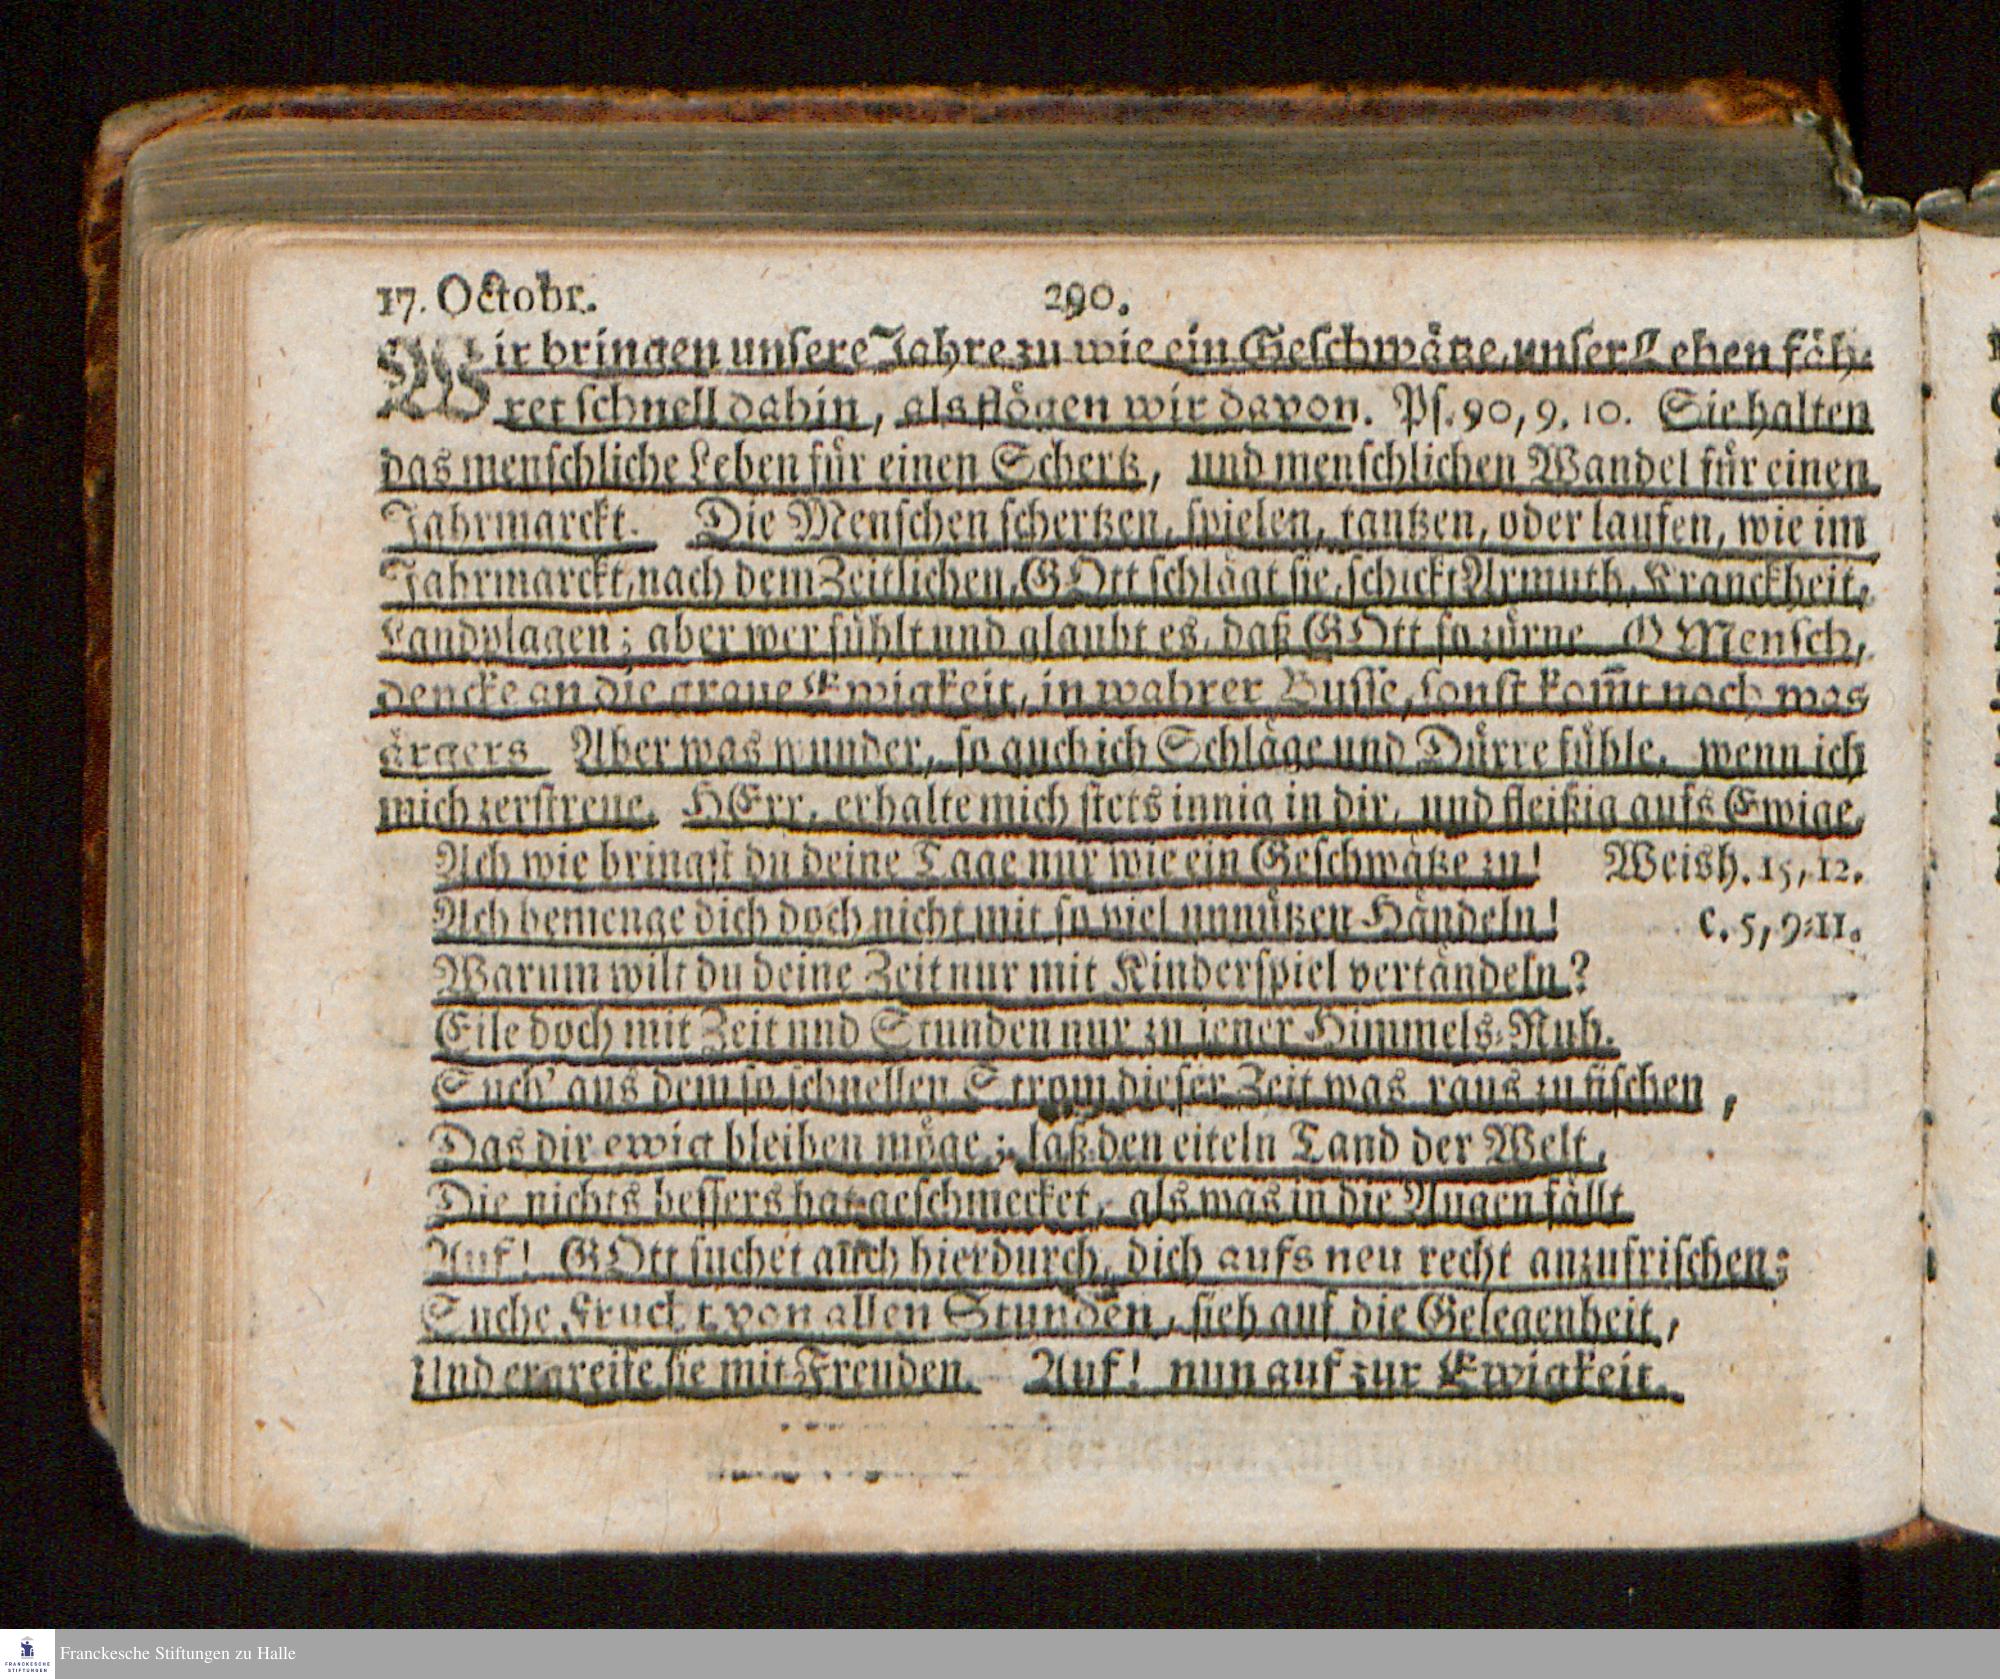 17. Octobr. 290.
Wir bringen unsere Jahre zu wie ein Geschwätze, unser Leben fäh-
ret schnell dahin, als flögen wir davon. Ps. 90, 9. 10. Sie halten
das menschliche Leben für einen Schertz, und menschlichen Wandel für einen
Jahrmarckt. Die Menschen schertzen, spielen, tantzen, oder laufen, wie im
Jahrmarckt, nach dem Zeitlichen, GOtt schlägt sie, schickt Armuth, Kranckheit,
Landplagen; aber wer fühlt und glaubt es, daß GOtt so zürne. O Mensch,
dencke an die graue Ewigkeit, in wahrer Busse, sonst kom̃t noch was
ärgers. Aber was wunder, so auch ich Schläge und Dürre fühle, wenn ich
mich zerstreue. HErr, erhalte mich stets innig in dir, und fleißig aufs Ewige.
Ach wie bringst du deine Tage nur wie ein Geschwätze zu! Weish. 15, 12.
Ach bemenge dich doch nicht mit so viel unnützen Händeln! C. 5, 9-11.
Warum wilt du deine Zeit nur mit Kinderspiel vertändeln?
Eile doch mit Zeit und Stunden nur zu jener Himmels-Ruh.
Such' aus dem so schnellen Strom dieser Zeit was raus zu fischen,
Das dir ewig bleiben möge; laß den eiteln Tand der Welt,
Die nichts bessers hat geschmecket, als was in die Augen fällt.
Auf! GOtt suchet auch hierdurch, dich aufs neu recht anzufrischen;
Suche Frucht von allen Stunden, sieh auf die Gelegenheit,
Und ergreife sie mit Freuden. Auf! nun auf zur Ewigkeit.
FRANCKESCHE
STIFTUNGEN
Franckesche Stiftungen zu Halle